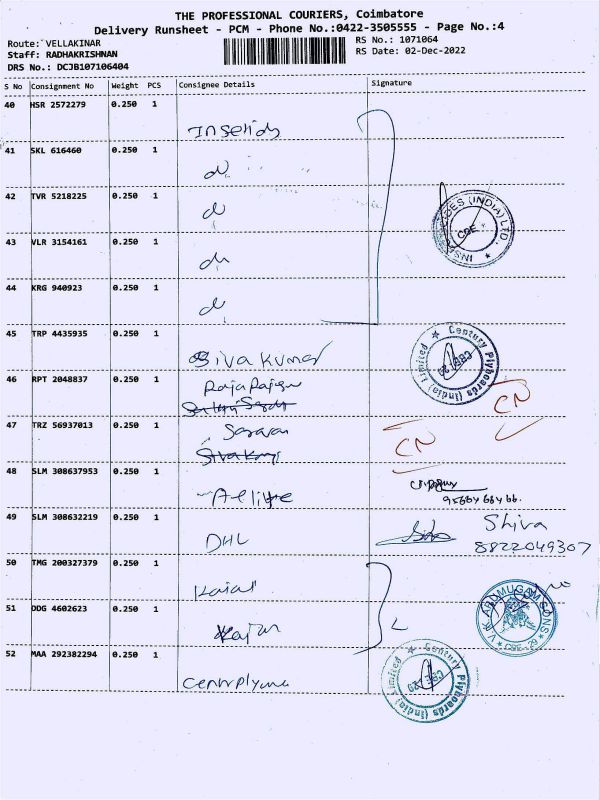 THE PROFESSIONAL COURIERS, Coimbatore
Delivery Runsheet - PCM - Phone No.:0422-3505555 - Page No.:4
Route: VELLAKINAR
Staff: RADHAKRISHNAN
DRS No.: DCJB107106404
RS No.: 1071064
RS Date: 02-Dec-2022
S No Consignment No Weight PCS Consignee Details Signature
40 HSR 2572279 0.250 1
41 SKL 616460 0.250 1
42 TVR 5218225 0.250 1
43 VLR 3154161 0.250 1
(INDIA) LTD.
CBE
44 KRG 940923 0.250 1
45 TRP 4435935 0.250 1 Siva Kumar
Century Plyboards (India) Limited
46 RPT 2048837 0.250 1
CN
47 TRZ 56937013 0.250 1
CN
48 SLM 308637953 0.250 1
49 SLM 308632219 0.250 1 DHL Shiva
8822049307
50 TMG 200327379 0.250 1
51 DDG 4602623 0.250 1
V.K. ARUMUGAM SONS
CBE-29
52 MAA 292382294 0.250 1
Century Plyboards (India) Limited
CBE 29